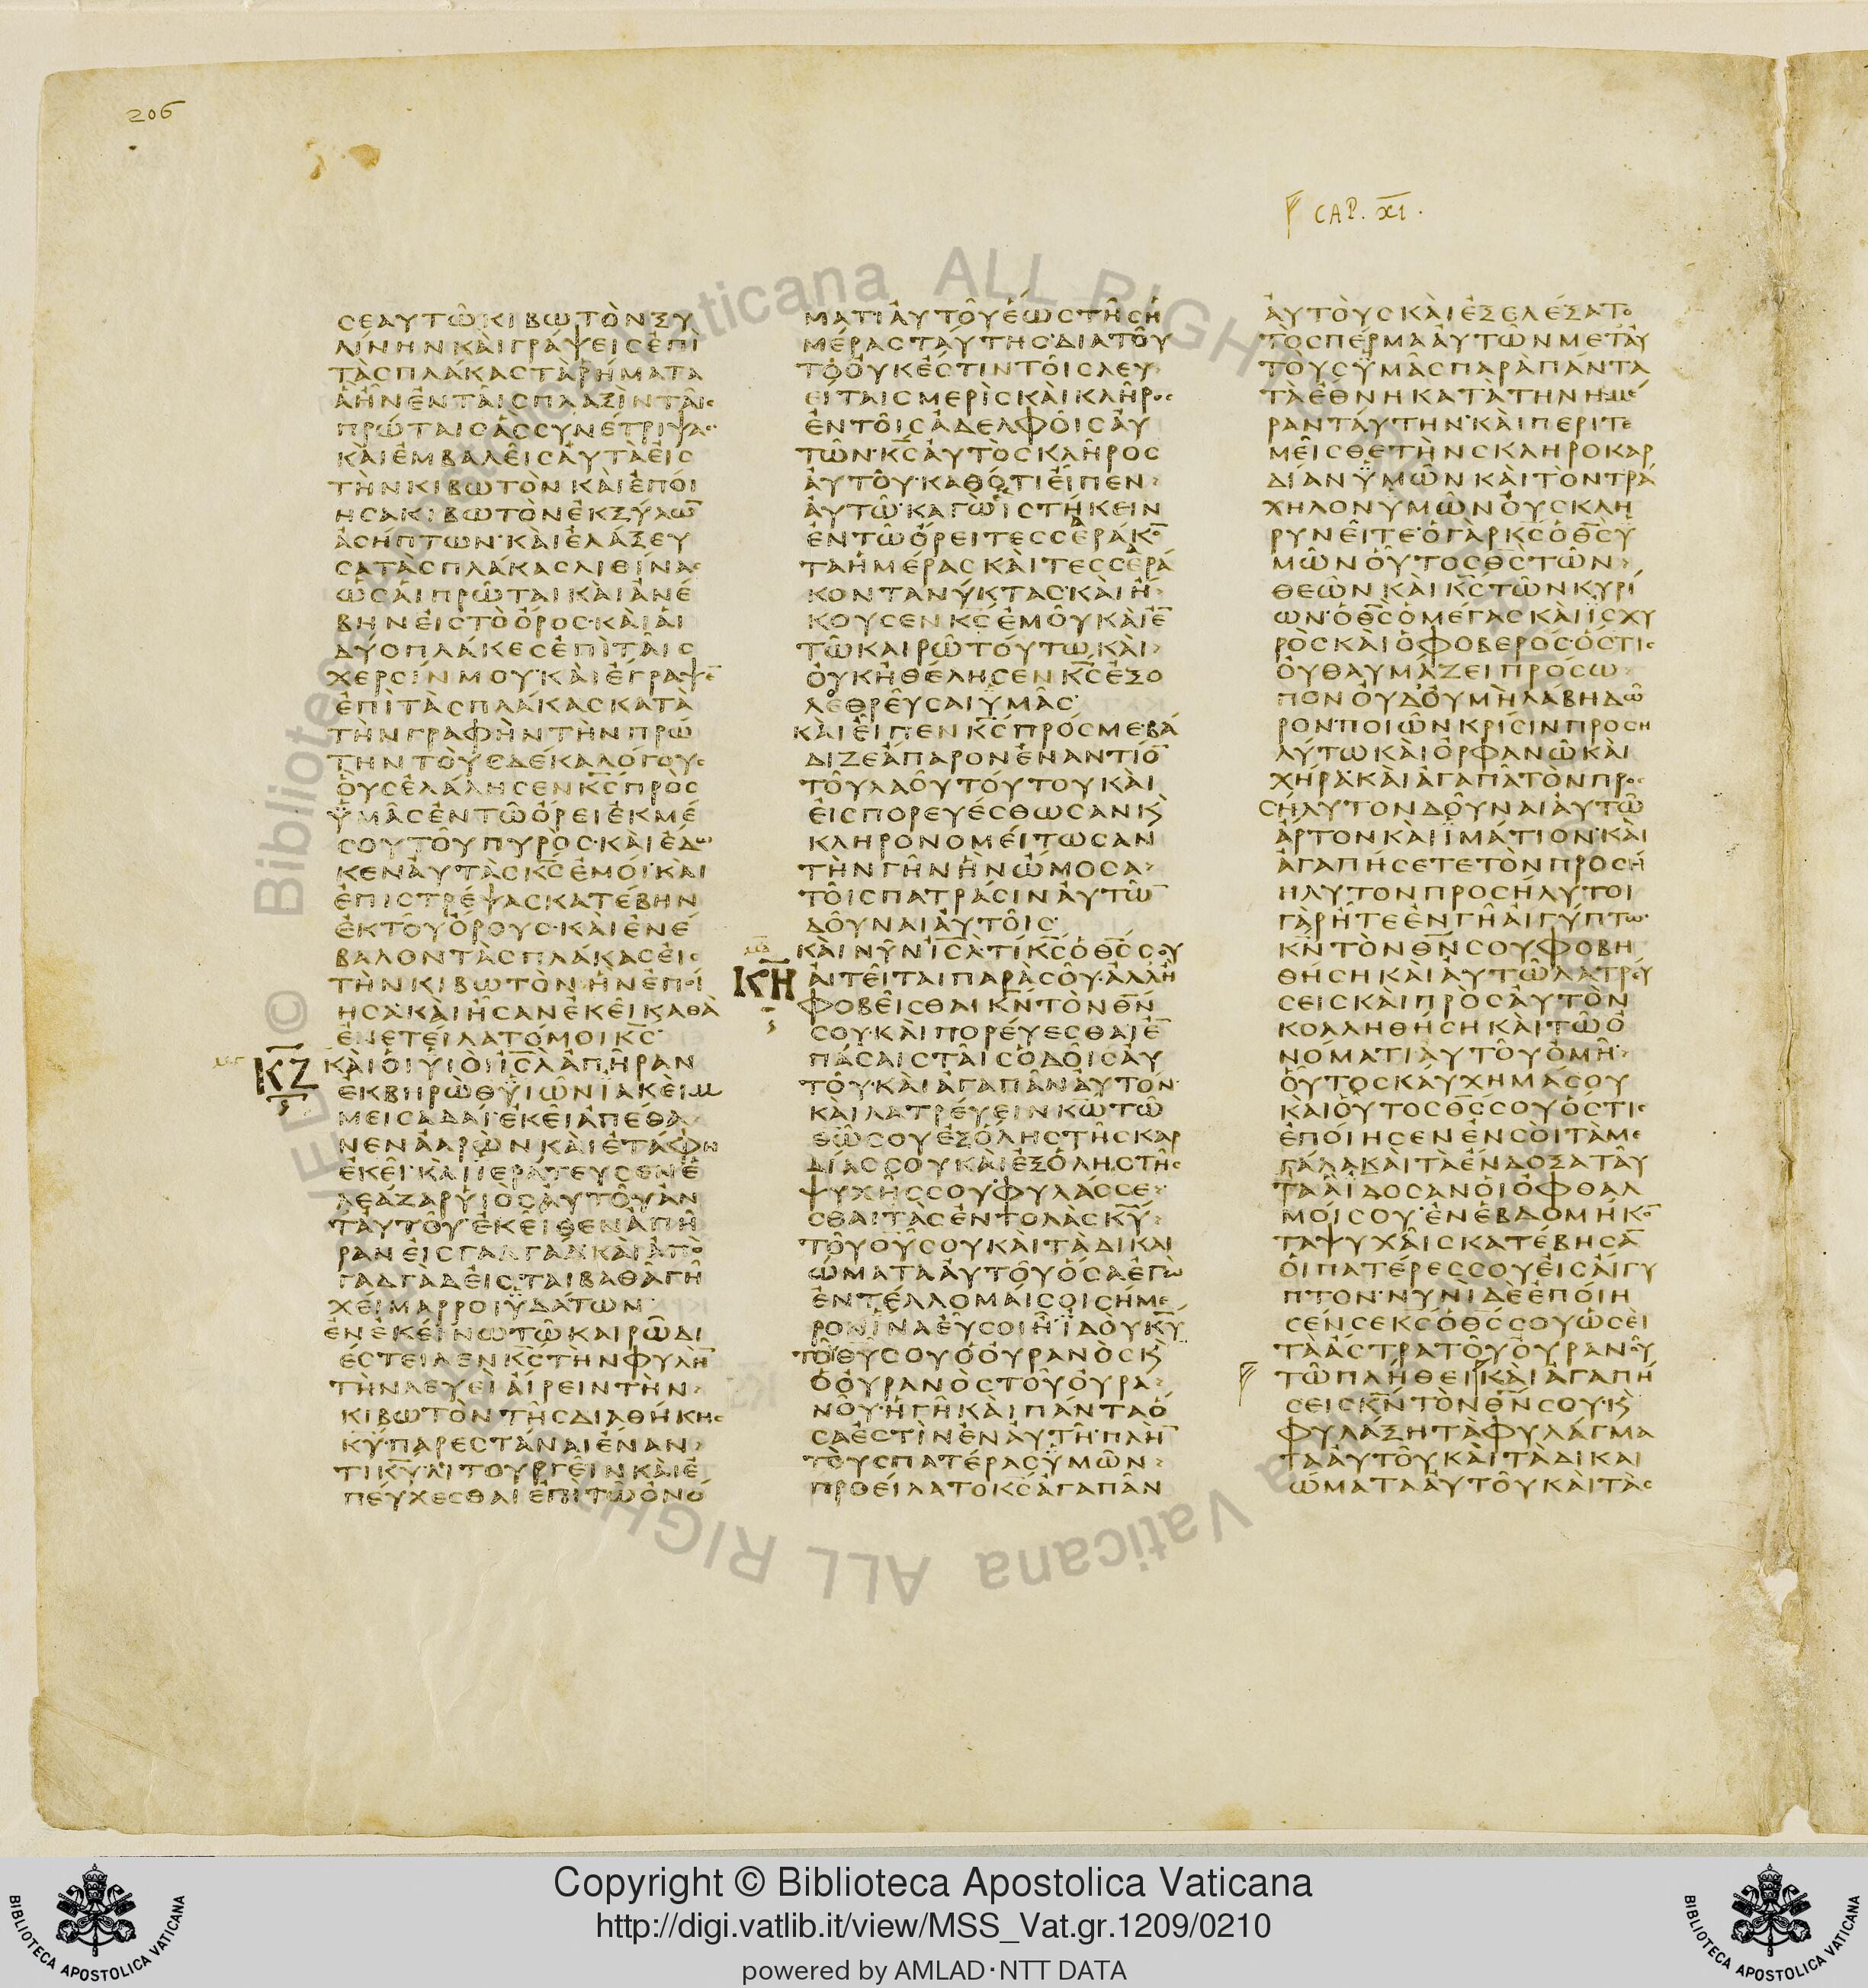 206
CAP. XI.
ϹΕΑΥΤΩΚΙΒΩΤΟΝΞΥ
ΛΙΝΗΝΚΑΙΓΡΑΨΕΙϹΕΠΙ
ΤΑϹΠΛΑΚΑϹΤΑΡΗΜΑΤΑ
ΑΗΝΕΝΤΑΙϹΠΛΑΞΙΝΤΑΙϹ
ΠΡΩΤΑΙϹΑϹϹΥΝΕΤΡΙΨΑϹ
ΚΑΙΕΜΒΑΛΕΙϹΑΥΤΑΕΙϹ
ΤΗΝΚΙΒΩΤΟΝΚΑΙΕΠΟΙ
ΗϹΑΚΙΒΩΤΟΝΕΚΞΥΛΩ̅
ΑϹΗΠΤΩΝ·ΚΑΙΕΛΑΞΕΥ
ϹΑΤΑϹΠΛΑΚΑϹΛΙΘΙΝΑϹ
ΩϹΑΙΠΡΩΤΑΙΚΑΙΑΝΕ
ΒΗΝΕΙϹΤΟΟΡΟϹ·ΚΑΙΑΙ
ΔΥΟΠΛΑΚΕϹΕΠΙΤΑΙϹ
ΧΕΡϹΙΝΜΟΥ·ΚΑΙΕΓΡΑΨΕ̅
ΕΠΙΤΑϹΠΛΑΚΑϹΚΑΤΑ
ΤΗΝΓΡΑΦΗΝΤΗΝΠΡΩ
ΤΗΝΤΟΥϹΔΕΚΑΛΟΓΟΥϹ
ΟΥϹΕΛΑΛΗϹΕΝΚ̅Ϲ̅ΠΡΟϹ
ΫΜΑϹΕΝΤΩΟΡΕΙΕΚΜΕ
ϹΟΥΤΟΥΠΥΡΟϹ·ΚΑΙΕΔΩ
ΚΕΝΑΥΤΑϹΚ̅Ϲ̅ΕΜΟΙ·ΚΑΙ
ΕΠΙϹΤΡΕΨΑϹΚΑΤΕΒΗΝ
ΕΚΤΟΥΟΡΟΥϹ·ΚΑΙΕΝΕ
ΒΑΛΟΝΤΑϹΠΛΑΚΑϹΕΙϹ
ΤΗΝΚΙΒΩΤΟΝΗΝΕΠΟΙ
ΗϹΑ·ΚΑΙΗϹΑΝΕΚΕΙΚΑΘΑ
ΕΝΕΤΕΙΛΑΤΟΜΟΙΚ̅Ϲ̅·
Κ̅Ζ̅
ΚΑΙΟΙΥΙΟΙΙ̅Ϲ̅Λ̅ΑΠΗΡΑΝ
ΕΚΒΗΡΩΘΫΙΩΝΪΑΚΕΙΜ
ΜΕΙϹΑΔΑΙ·ΕΚΕΙΑΠΕΘΑ
ΝΕΝΑΑΡΩΝΚΑΙΕΤΑΦΗ
ΕΚΕΙ·ΚΑΙΙΕΡΑΤΕΥϹΕΝΕ
ΛΕΑΖΑΡΥΙΟϹΑΥΤΟΥΑΝ
ΤΑΥΤΟΥ·ΕΚΕΙΘΕΝΑΠΗ
ΡΑΝΕΙϹΓΑΔΓΑΔΚΑΙΑΠΟ
ΓΑΔΓΑΔΕΙϹΤΑΙΒΑΘΑΓΗ
ΧΕΙΜΑΡΡΟΙΫΔΑΤΩΝ·
ΕΝΕΚΕΙΝΩΤΩΚΑΙΡΩΔΙ
ΕϹΤΕΙΛΕΝΚ̅Ϲ̅ΤΗΝΦΥΛΗ̅
ΤΗΝΛΕΥΕΙΑΙΡΕΙΝΤΗΝ
ΚΙΒΩΤΟΝΤΗϹΔΙΑΘΗΚΗϹ
Κ̅Υ̅·ΠΑΡΕϹΤΑΝΑΙΕΝΑΝ
ΤΙΚ̅Υ̅·ΛΙΤΟΥΡΓΕΙΝΚΑΙΕ
ΠΕΥΧΕϹΘΑΙΕΠΙΤΩΟΝΟ
ΜΑΤΙΑΥΤΟΥΕΩϹΤΗϹΗ
ΜΕΡΑϹΤΑΥΤΗϹ·ΔΙΑΤΟΥ
ΤΟΟΥΚΕϹΤΙΝΤΟΙϹΛΕΥ
ΕΙΤΑΙϹΜΕΡΙϹΚΑΙΚΛΗΡΟϹ
ΕΝΤΟΙϹΑΔΕΛΦΟΙϹΑΥ
ΤΩΝ·Κ̅Ϲ̅ΑΥΤΟϹΚΛΗΡΟϹ
ΑΥΤΟΥ·ΚΑΘΟΤΙΕΙΠΕΝ
ΑΥΤΩ·ΚΑΓΩΙϹΤΗΚΕΙΝ
ΕΝΤΩΟΡΕΙΤΕϹϹΕΡΑΚΟ̅
ΤΑΗΜΕΡΑϹΚΑΙΤΕϹϹΕΡΑ
ΚΟΝΤΑΝΥΚΤΑϹ·ΚΑΙΗ
ΚΟΥϹΕΝΚ̅Ϲ̅ΕΜΟΥΚΑΙΕ̅
ΤΩΚΑΙΡΩΤΟΥΤΩΚΑΙ
ΟΥΚΗΘΕΛΗϹΕΝΚ̅Ϲ̅ΕΞΟ
ΛΕΘΡΕΥϹΑΙΫΜΑϹ·
ΚΑΙΕΙΠΕΝΚ̅Ϲ̅ΠΡΟϹΜΕ·ΒΑ
ΔΙΖΕΑΠΑΡΟΝΕΝΑΝΤΙΟ̅
ΤΟΥΛΑΟΥΤΟΥΤΟΥΚΑΙ
ΕΙϹΠΟΡΕΥΕϹΘΩϹΑΝΚ
ΚΛΗΡΟΝΟΜΕΙΤΩϹΑΝ
ΤΗΝΓΗΝΗΝΩΜΟϹΑ
ΤΟΙϹΠΑΤΡΑϹΙΝΑΥΤΩ̅
ΔΟΥΝΑΙΑΥΤΟΙϹ·
ΚΑΙΝΥΝΙ̅Ϲ̅Λ̅·ΤΙΚ̅Ϲ̅ΟΘ̅Ϲ̅ϹΟΥ
Κ̅Η̅
ΑΙΤΕΙΤΑΙΠΑΡΑϹΟΥ·ΑΛΛΗ
ΦΟΒΕΙϹΘΑΙΚ̅Ν̅ΤΟΝΘ̅Ν̅
ϹΟΥ·ΚΑΙΠΟΡΕΥΕϹΘΑΙΕ̅
ΠΑϹΑΙϹΤΑΙϹΟΔΟΙϹΑΥ
ΤΟΥ·ΚΑΙΑΓΑΠΑΝΑΥΤΟΝ·
ΚΑΙΛΑΤΡΕΥΕΙΝΚ̅Ω̅ΤΩ
Θ̅Ω̅ϹΟΥΕΞΟΛΗϹΤΗϹΚΑΡ
ΔΙΑϹϹΟΥΚΑΙΕΞΟΛΗϹΤΗϹ
ΨΥΧΗϹϹΟΥ·ΦΥΛΑϹϹΕ
ϹΘΑΙΤΑϹΕΝΤΟΛΑϹΚ̅Υ̅
ΤΟΥΘ̅Υ̅ϹΟΥΚΑΙΤΑΔΙΚΑΙ
ΩΜΑΤΑΑΥΤΟΥΟϹΑΕΓΩ
ΕΝΤΕΛΛΟΜΑΙϹΟΙϹΗΜΕ
ΡΟΝΙΝΑΕΥϹΟΙΗ·ΪΔΟΥΚ̅Υ̅
ΤΟΥΘ̅Υ̅ϹΟΥΟΟΥΡΑΝΟϹΚ
ΟΟΥΡΑΝΟϹΤΟΥΟΥΡΑ
ΝΟΥ·ΗΓΗΚΑΙΠΑΝΤΑΟ
ϹΑΕϹΤΙΝΕΝΑΥΤΗ·ΠΛΗ̅
ΤΟΥϹΠΑΤΕΡΑϹΫΜΩΝ
ΠΡΟΕΙΛΑΤΟΚ̅Ϲ̅ΑΓΑΠΑΝ
ΑΥΤΟΥϹΚΑΙΕΞΕΛΕΞΑΤΟ
ΤΟϹΠΕΡΜΑΑΥΤΩΝΜΕΤΑΥ
ΤΟΥϹΫΜΑϹΠΑΡΑΠΑΝΤΑ
ΤΑΕΘΝΗΚΑΤΑΤΗΝΗΜΕ
ΡΑΝΤΑΥΤΗΝ·ΚΑΙΠΕΡΙΤΕ
ΜΕΙϹΘΕΤΗΝϹΚΛΗΡΟΚΑΡ
ΔΙΑΝΫΜΩΝΚΑΙΤΟΝΤΡΑ
ΧΗΛΟΝΥΜΩΝΟΥϹΚΛΗ
ΡΥΝΕΙΤΕ·ΟΓΑΡΚ̅Ϲ̅ΟΘ̅Ϲ̅Ϋ
ΜΩΝΟΥΤΟϹΘ̅Ϲ̅ΤΩΝ
ΘΕΩΝΚΑΙΚ̅Ϲ̅ΤΩΝΚΥΡΙ
ΩΝ·ΟΘ̅Ϲ̅ΟΜΕΓΑϹΚΑΙΙϹΧΥ
ΡΟϹΚΑΙΟΦΟΒΕΡΟϹ·ΟϹΤΙϹ
ΟΥΘΑΥΜΑΖΕΙΠΡΟϹΩ
ΠΟΝΟΥΔΟΥΜΗΛΑΒΗΔΩ
ΡΟΝ·ΠΟΙΩΝΚΡΙϹΙΝΠΡΟϹΗ
ΛΥΤΩΚΑΙΟΡΦΑΝΩΚΑΙ
ΧΗΡΑ·ΚΑΙΑΓΑΠΑΤΟΝΠΡΟ
ϹΗΛΥΤΟΝΔΟΥΝΑΙΑΥΤΩ
ΑΡΤΟΝΚΑΙΪΜΑΤΙΟΝ·ΚΑΙ
ΑΓΑΠΗϹΕΤΕΤΟΝΠΡΟϹΗ
ΗΛΥΤΟΝΠΡΟϹΗΛΥΤΟΙ
ΓΑΡΗΤΕΕΝΓΗΑΙΓΥΠΤΩ·
Κ̅Ν̅ΤΟΝΘ̅Ν̅ϹΟΥΦΟΒΗ
ΘΗϹΗΚΑΙΑΥΤΩΛΑΤΡΕΥ
ϹΕΙϹΚΑΙΠΡΟϹΑΥΤΟΝ
ΚΟΛΛΗΘΗϹΗΚΑΙΤΩΟ
ΝΟΜΑΤΙΑΥΤΟΥΟΜΗ·
ΟΥΤΟϹΚΑΥΧΗΜΑϹΟΥ
ΚΑΙΟΥΤΟϹΘ̅Ϲ̅ϹΟΥΟϹΤΙϹ
ΕΠΟΙΗϹΕΝΕΝϹΟΙΤΑΜΕ
ΓΑΛΑΚΑΙΤΑΕΝΔΟΞΑΤΑΥ
ΤΑΑΙΔΟϹΑΝΟΙΟΦΘΑΛ
ΜΟΙϹΟΥ·ΕΝΕΒΔΟΜΗΚΟ̅
ΤΑΨΥΧΑΙϹΚΑΤΕΒΗϹΑ̅
ΟΙΠΑΤΕΡΕϹϹΟΥΕΙϹΑΙΓΥ
ΠΤΟΝ·ΝΥΝΙΔΕΕΠΟΙΗ
ϹΕΝϹΕΚ̅Ϲ̅ΟΘ̅Ϲ̅ϹΟΥΩϹΕΙ
ΤΑΑϹΤΡΑΤΟΥΟΥΡΑΝΟΥ
ΤΩΠΛΗΘΕΙΚΑΙΑΓΑΠΗ
ϹΕΙϹΚ̅Ν̅ΤΟΝΘ̅Ν̅ϹΟΥ·Κ
ΦΥΛΑΞΗΤΑΦΥΛΑΓΜΑ
ΤΑΑΥΤΟΥΚΑΙΤΑΔΙΚΑΙ
ΩΜΑΤΑΑΥΤΟΥΚΑΙΤΑϹ
© Biblioteca Apostolica Vaticana ALL RIGHTS RESERVED
Copyright © Biblioteca Apostolica Vaticana
http://digi.vatlib.it/view/MSS_Vat.gr.1209/0210
powered by AMLAD·NTT DATA
BIBLIOTECA APOSTOLICA VATICANA
BIBLIOTECA APOSTOLICA VATICANA